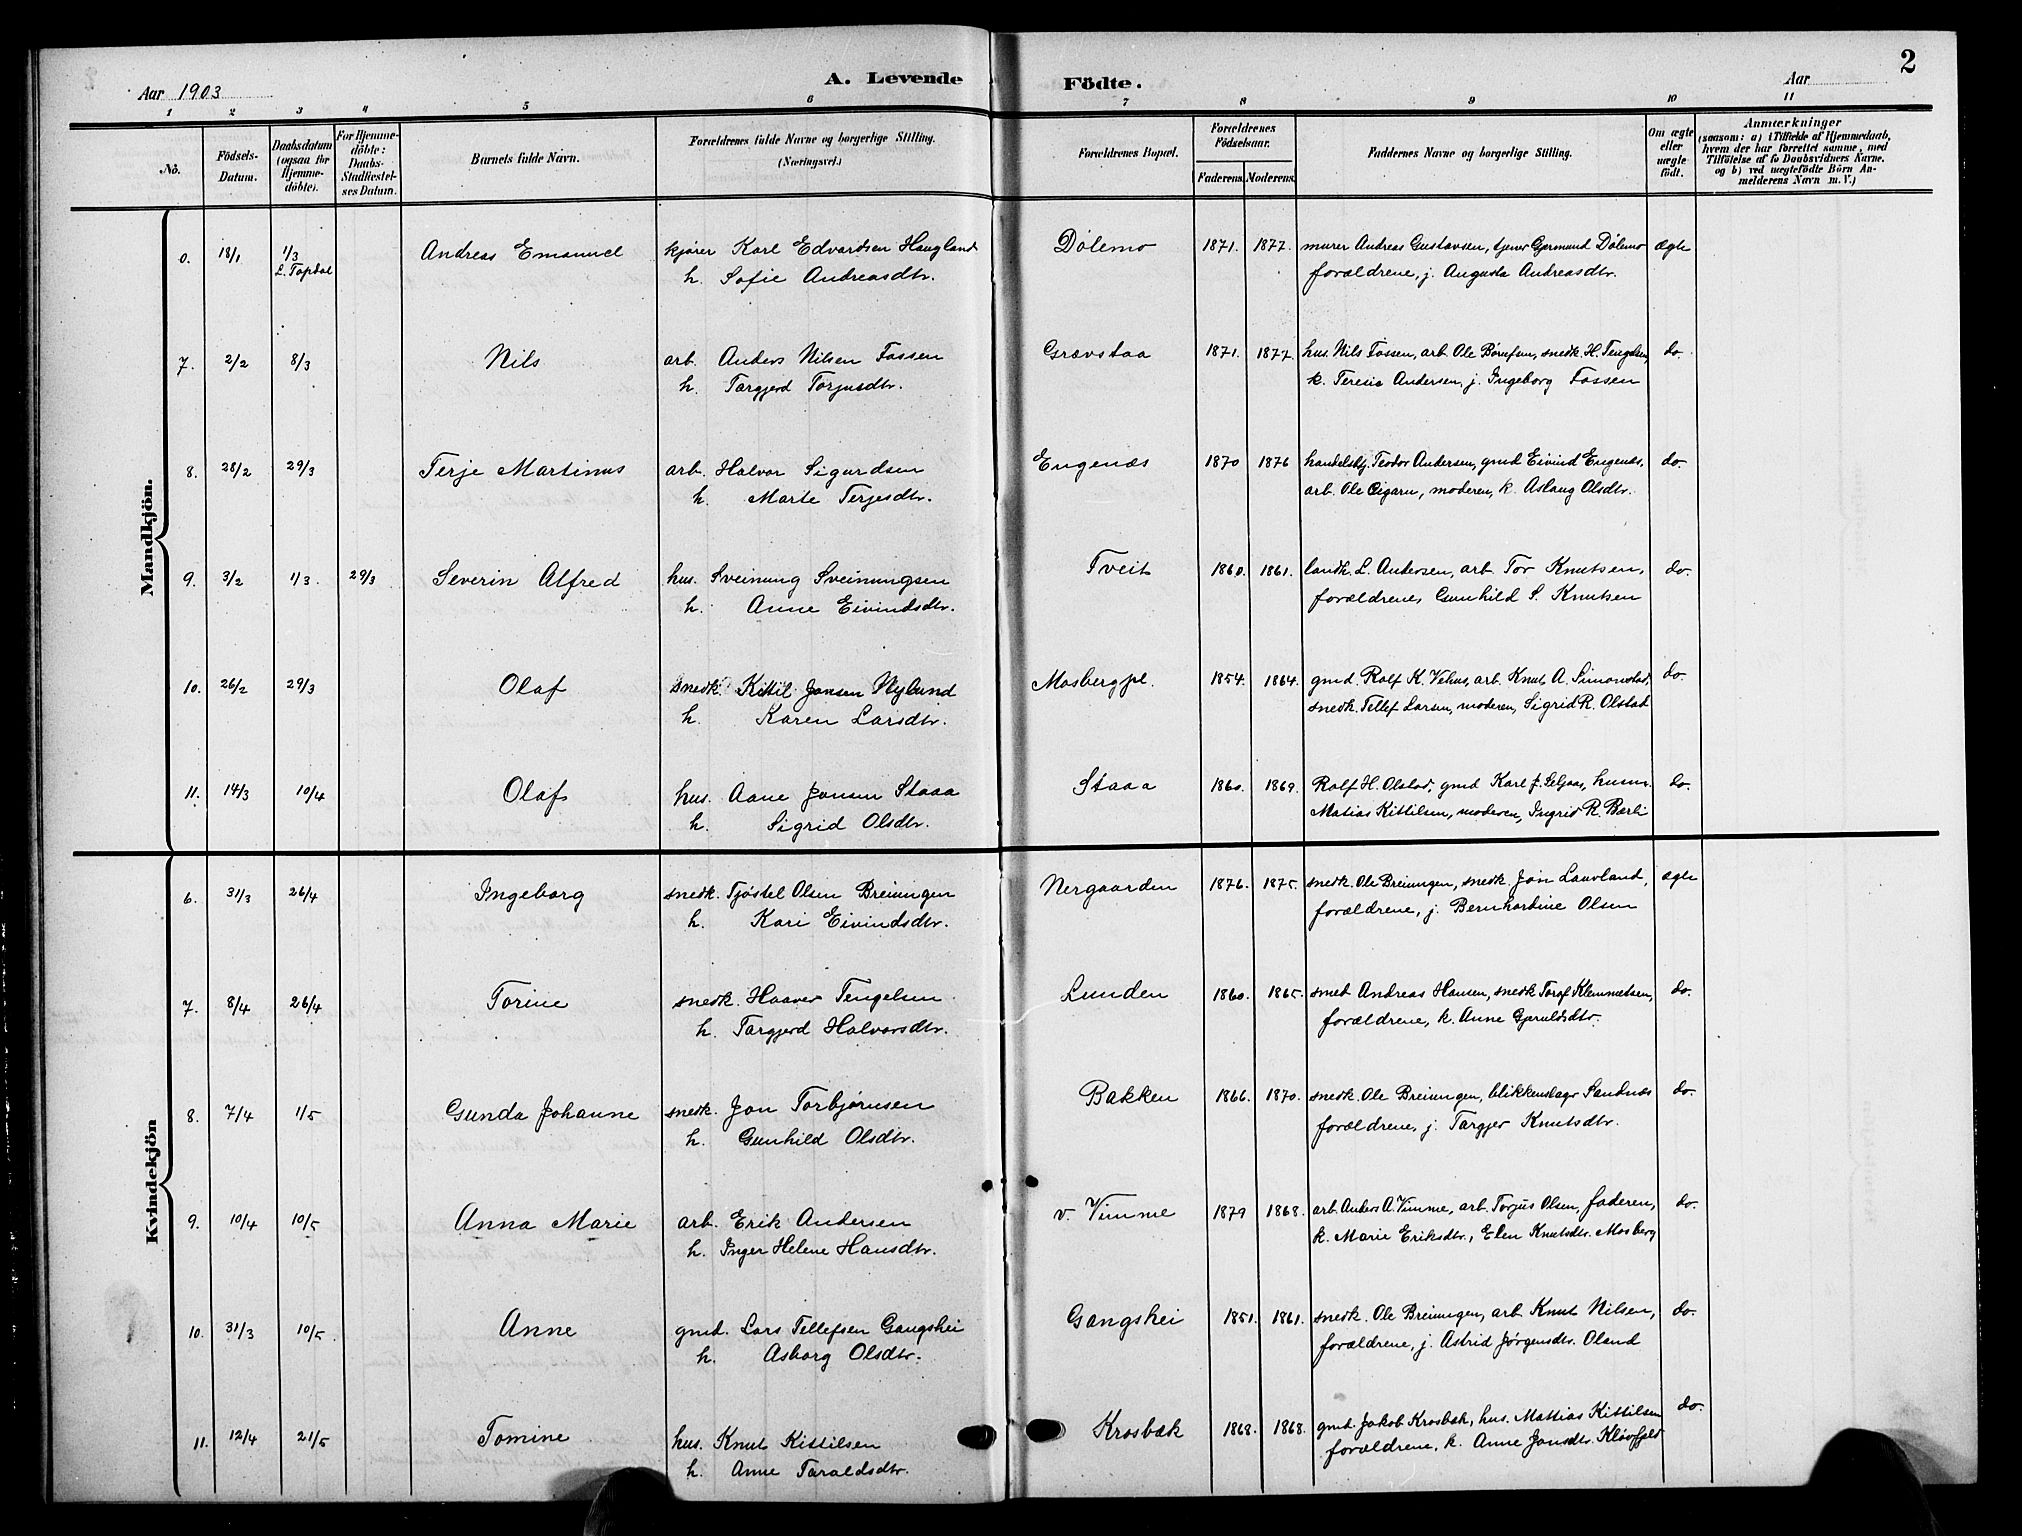 2
A. Levende Födte.
Aar 1903
Aar
1 2 3 4 5 6 7 8 9 10 11
No.
Födsels-Datum.
Daabsdatum (ogsaa for Hjemme-döbte).
For Hjemme-döbte: Daabs-Stadfæstel-ses Datum.
Barnets fulde Navn.
Forældrenes fulde Navne og borgerlige Stilling. (Næringsvei.)
Forældrenes Bopæl.
Forældrenes Födselsaar.
Faderens. Moderens.
Faddernes Navne og borgerlige Stilling.
Om ægte eller uægte födt.
Anmærkninger
(saasom: a) i Tilfælde af Hjemmedaab, hvem der har forrettet samme, med Tilföielse af to Daabsvidners Navne. og b) ved uægtefödte Börn An-melderens Navn m. V.)
Mandkjön.
18/1 1/3 Andreas Emanuel kjører Karl Edvardsen Haugland Dölemo 1871. 1877. murer Andreas Gustavsen, tjener Germund Dölemo ægte
L. Topdal h. Sofie Andreasdtr. forældrene, j. Augusta Andreasdtr.
7. 2/2 8/3 Nils arb. Anders Nilsen Fossen Grævstaa 1871. 1877. hus. Nils Fossen, arb. Ole snedk. H. Tengelsen, do.
h. Targjerd Torjusdtr. k. Terese Andersen, j. Ingeborg Fossen
8. 28/2 29/3 Terje Martinus arb. Halvor Sigurdsen Engenæs 1870 1876 handelsbtj. Teodor Andersen, gmd Eivind Engenæs, do.
h. Marte Terjesdtr. arb. Ole moderen, k. Aslaug Olsdtr.
9. 3/2 1/3. 29/3 Severin Alfred hus. Sveinung Sveinungsen Tveit 1860. 1861. landh. L. Andersen, arb. Tor Knutsen, do.
h. Anne Eivindsdtr. forældrene, Gunhild S. Knutsen
10. 26/2 29/3 Olaf snedk. Kittil Jonsen Nylund Mosbergpl. 1854. 1864. gmd. Rolf K. Vehus, arb. Knut A. Simonstad, do.
h. Karen Larsdtr. snedk. Tellef Larsen, moderen, Sigrid R. Olstad
11. 14/3 10/4 Olaf hus. Aane Jonsen Staaa Staaa 1860. 1869. Rolf H. Olstad, gmd Karl J. Seljaas, husm. do.
h. Sigrid Olsdtr. Matias Kittilsen, moderen, Ingrid R. Bærli
Kvindekjön
6. 31/3 26/4 Ingeborg snedk. Tjöstel Olsen Breiungen Nergaarden 1876. 1875. snedk. Ole Breiungen, snedk. Jon Lauvland, ægte
h. Kari Eivindsdtr. forældrene, j. Bernhardine Olsen
7. 8/4 26/4 Torine snedk. Haaver Tengelsen Lunden 1860. 1865. smed Andreas Hansen, snedk Torof Klemmetsen, do.
h. Targjerd Halvorsdtr. forældrene, k. Anne Gjeruldsdtr.
8. 7/4 1/5 Gunda Johanne snedk. Jon Torbjørnsen Bakken 1866. 1870. snedk. Ole Breiungen, blikkenslager Sandnæs do.
h. Gunhild Olsdtr. forældrene, j. Targjer Knutsdtr.
9. 10/4 10/5 Anna Marie arb. Erik Andersen v. Vimme 1879 1868. arb. Anders A. Vimme, arb. Torjus Olsen, faderen, do.
h. Inger Helene Hansdtr. k. Marie Eriksdtr., Elen Knutsdtr. Mosberg
10. 31/3 10/5 Anne gmd. Lars Tellefsen Gangshei Gangshei 1851. 1861. snedk. Ole Breiungen, arb. Knut Nilsen, do.
h. Asborg Olsdtr. forældrene, j. Astrid Jørgensdtr. Oland
11. 12/4 21/5 Tomine hus. Knut Kittilsen Krosbæk 1868. 1868. gmd. Jakob Krosbæk, hus. Mattias Kittilsen do.
h. Anne Taraldsdtr. forældrene, k. Anne Jonsdtr. Kløvfjeld